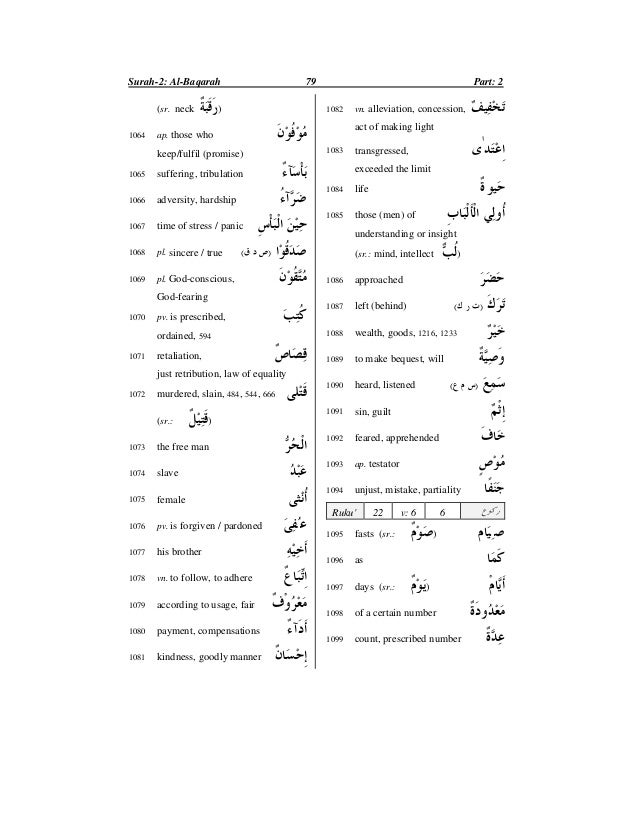 Surah-2: Al-Baqarah 79 Part: 2
(sr. neck رَقَبَةٌ)
1064 ap. those who مُوْفُوْنَ
keep/fulfil (promise)
1065 suffering, tribulation بَأْسَآءٌ
1066 adversity, hardship ضَرَّآءٌ
1067 time of stress / panic حِيْنَ الْبَأْسِ
1068 pl. sincere / true (ص د ق) صَدَقُوْا
1069 pl. God-conscious, مُتَّقُوْنَ
God-fearing
1070 pv. is prescribed, كُتِبَ
ordained, 594
1071 retaliation, قِصَاصٌ
just retribution, law of equality
1072 murdered, slain, 484, 544, 666 قَتْلٰى
(sr.: قَتِيْلٌ)
1073 the free man الْحُرُّ
1074 slave عَبْدُ
1075 female أُنْثٰى
1076 pv. is forgiven / pardoned عُفِىَ
1077 his brother أَخِيْهِ
1078 vn. to follow, to adhere اِتِّبَاعٌ
1079 according to usage, fair مَعْرُوْفٌ
1080 payment, compensations أَدَآءٌ
1081 kindness, goodly manner إِحْسَانٌ
1082 vn. alleviation, concession, تَخْفِيْفٌ
act of making light
1083 transgressed, اِعْتَدٰى
exceeded the limit
1084 life حَيٰوةٌ
1085 those (men) of أُولِي الْأَلْبَابِ
understanding or insight
(sr.: mind, intellect لُبٌّ)
1086 approached حَضَرَ
1087 left (behind) (ت ر ك) تَرَكَ
1088 wealth, goods, 1216, 1233 خَيْرٌ
1089 to make bequest, will وَصِيَّةٌ
1090 heard, listened (س م ع) سَمِعَ
1091 sin, guilt إِثْمٌ
1092 feared, apprehended خَافَ
1093 ap. testator مُوْصٍ
1094 unjust, mistake, partiality جَنَفًا
Ruku' 22 v: 6 6 ركوع
1095 fasts (sr.: صَوْمٌ) صِيَام
1096 as كَمَا
1097 days (sr.: يَوْمٌ) أَيَّام
1098 of a certain number مَعْدُودَةٌ
1099 count, prescribed number عِدَّةٌ